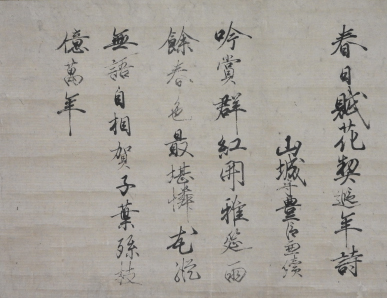 春日賦花契遐年詩
山城守豊臣兼續
吟賞群紅開雅筵雨
餘春色最堪憐花縦
無語自相賀子葉孫枝
億萬年